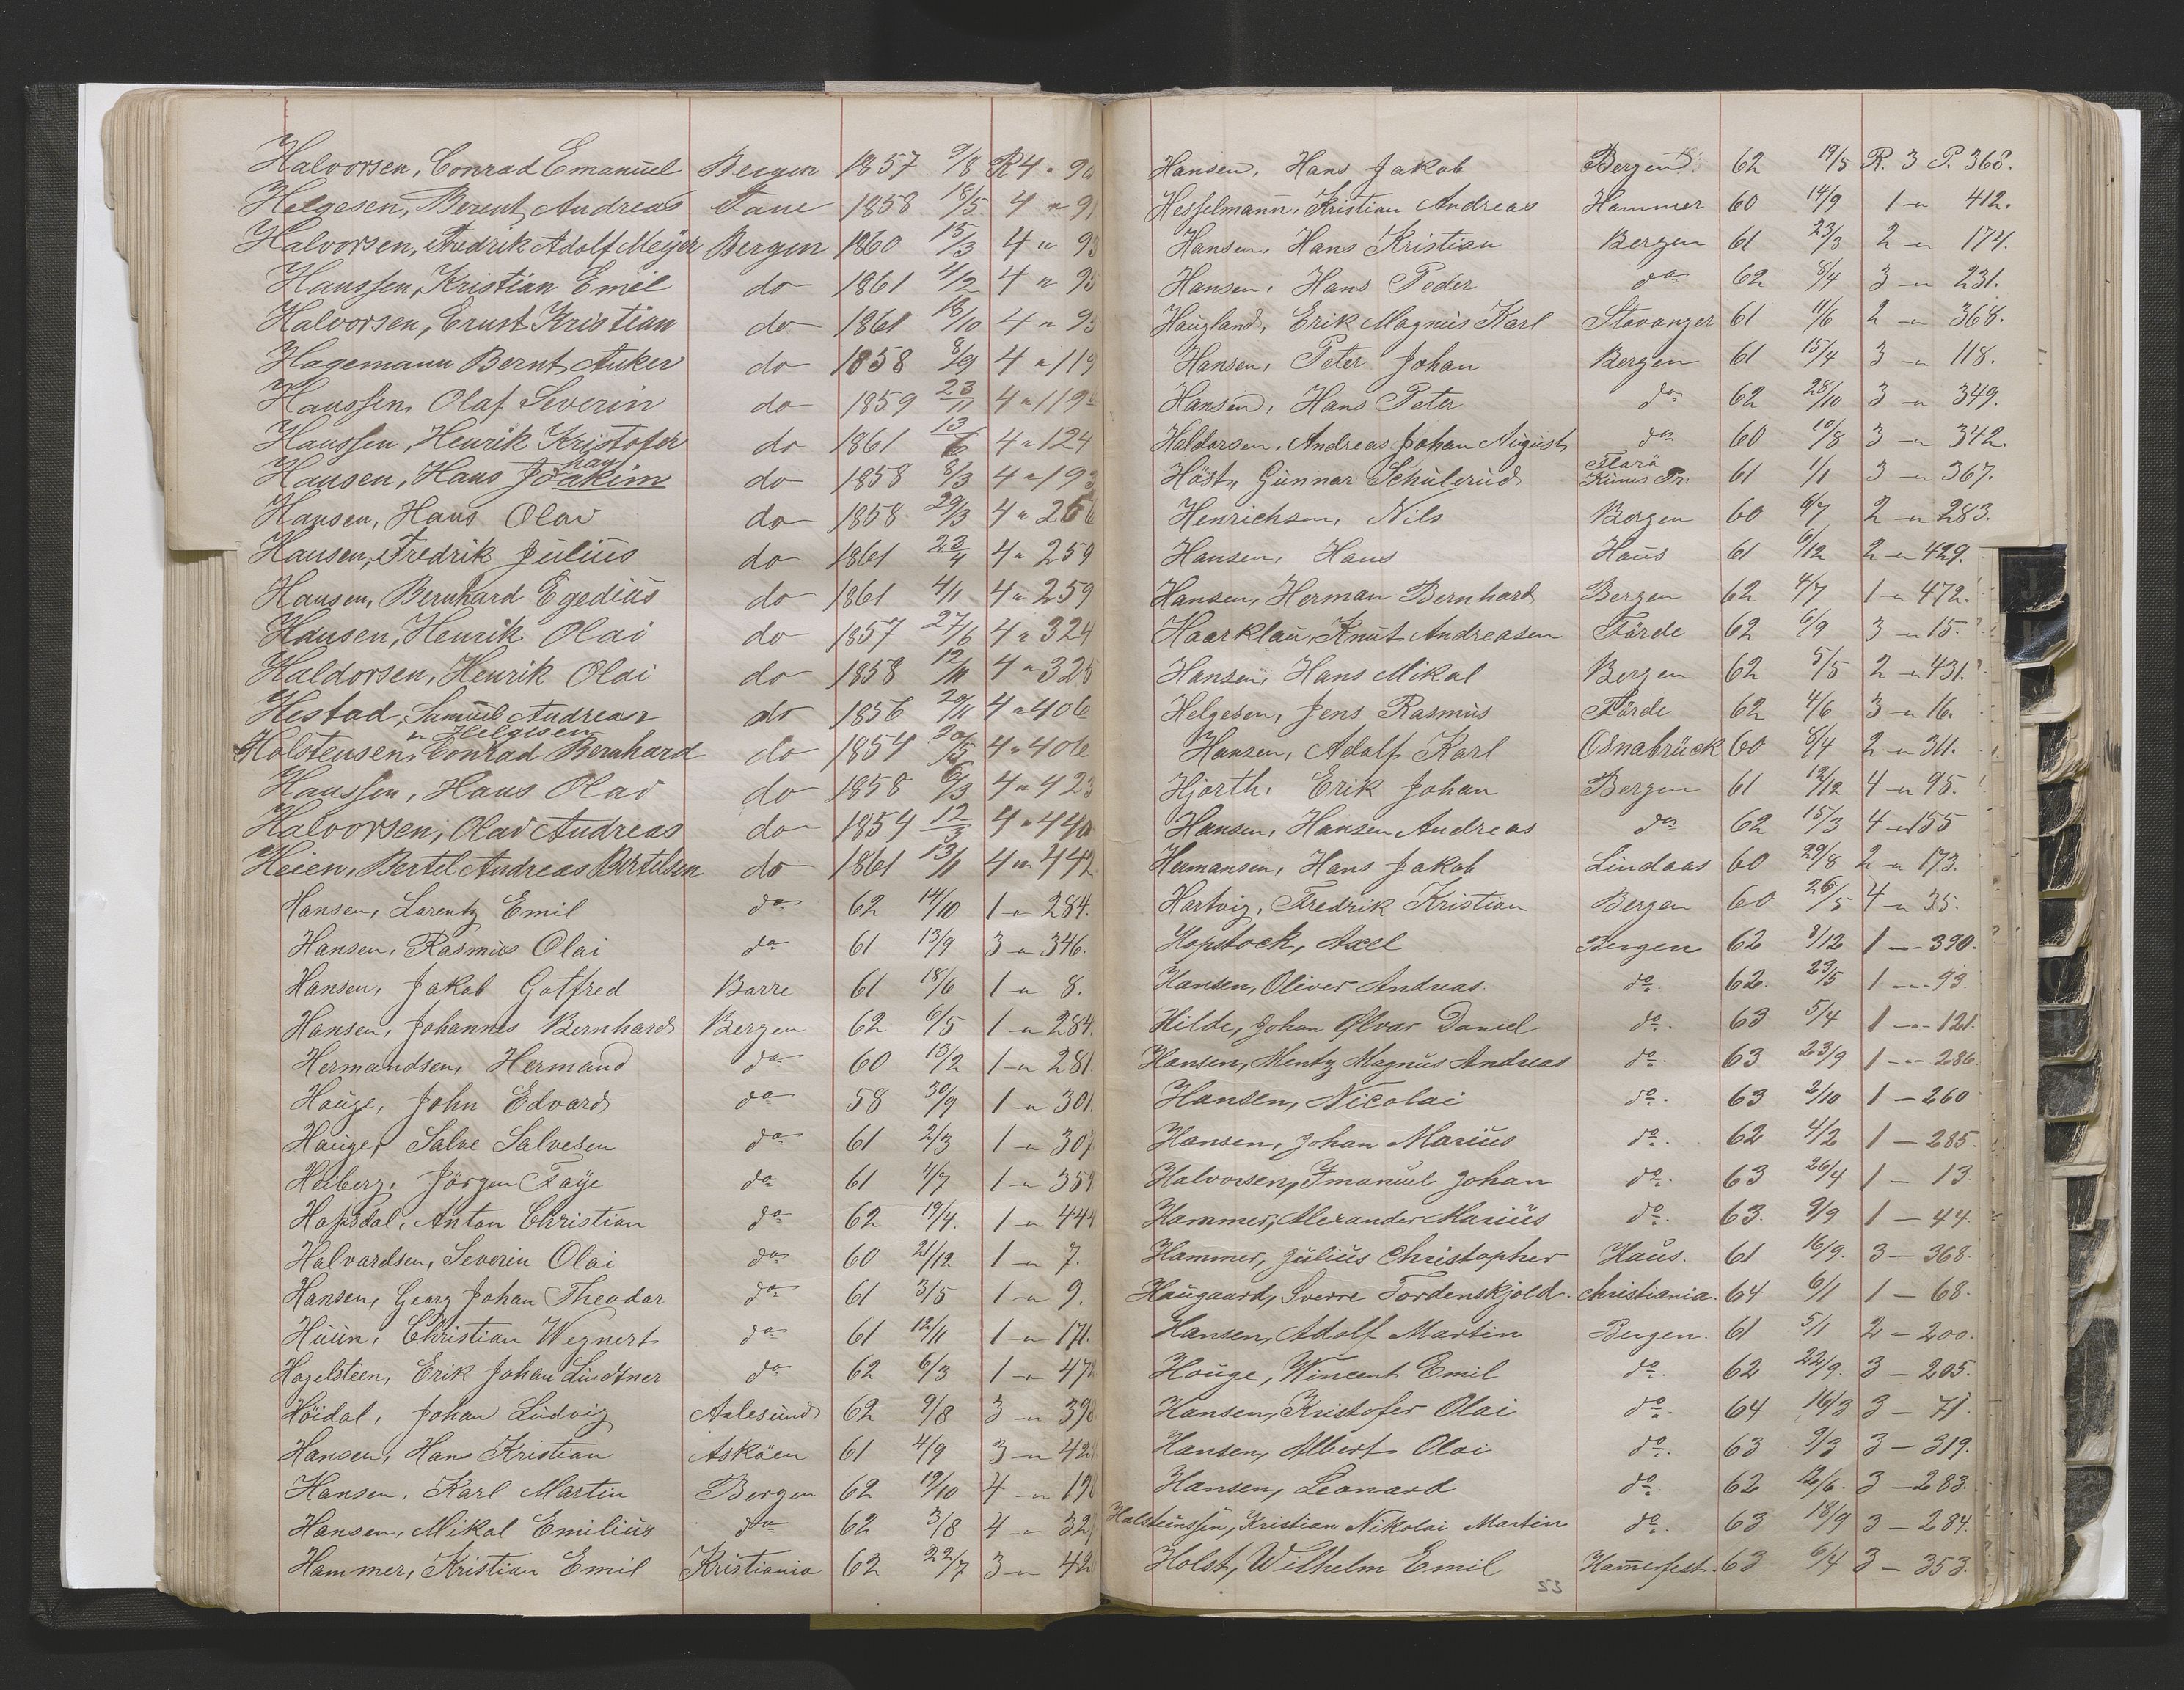 Halvorsen, Conrad Emanuel Bergen 1857 9/8 R4 " 90
Helgesen, Berent Andreas Fane 1858 18/5 4 " 91
Halvorsen, Fredrik Adolf Meyer Bergen 1860 15/3 4 " 93
Hanssen, Kristian Emil do 1861 4/2 4 " 95
Halvorsen, Ernst Kristian do 1861 18/10 4 " 95
Hagemann Bernt Anker do 1858 8/9 4 " 119
Hanssen, Olaf Severin do 1859 23/11 4 " 119
Hanssen, Henrik Kristofer do 1861 13/6 4 " 124
Hansen, Hans Joakim do 1858 8/3 4 " 193
Hansen, Hans Olav do 1858 29/3 4 " 256
Hansen, Fredrik Julius do 1861 23/4 4 " 259
Hansen, Bernhard Egedius do 1861 4/1 4 " 259
Hansen, Henrik Olai do 1857 27/6 4 " 324
Haldorsen, Henrik Olai do 1858 12/11 4 " 325
Hestad, Samuel Andreas do 1856 20/11 4 " 406
" Helgesen
Holstensen, Conrad Bernhard do 1854 20/5 4 " 406
Hanssen, Hans Olav do 1858 6/3 4 " 423
Halvorsen, Olav Andreas do 1854 12/3 4 " 440
Heien, Bertel Andreas Bertelsen do 1861 13/11 4 " 442
Hansen, Larentz Emil do 62 14/10 1 " 284.
Hansen, Rasmus Olai do 61 13/9 3 " 346.
Hansen, Jakob Gotfred Borre 61 18/6 1 " 8.
Hansen, Johannes Bernhard Bergen 62 6/5 1 " 284.
Hermandsen, Hermand do 60 13/2 1 " 281.
Hauge, John Edvard do 58 30/9 1 " 301.
Hauge, Salve Salvesen do 61 2/3 1 " 307
Heiberg, Jörgen Faye do 61 4/7 1 " 359
Hopsdal, Anton Christian do 62 19/4. 1 " 444
Halvardsen, Severin Olai do 60 21/12 1 " 7.
Hansen, Georg Johan Theodor do 61 3/5 1 " 9.
Huun, Christian Wegnert do 61 12/11 1 " 171.
Hagelsteen, Erik Johan Lindtner do 62 6/3 1 " 472
Höidal, Johan Ludvig Aalesund 62 9/8 3 " 398
Hansen, Hans Kristian Asköen 61 4/9 3 " 42
Hansen, Karl Martin Bergen 62 19/10 4 " 19
Hansen, Mikal Emilius do 62 3/8 4 " 32
Hammer, Kristian Emil Kristiania 62 22/7 3 " 42
Hansen, Hans Jakob Bergen 62 19/5 R. 3 P. 368.
Hesselmann, Kristian Andreas Hammer 60 14/9 1 " 412.
Hansen, Hans Kristian Bergen 61 23/3 2 " 174.
Hansen, Hans Peder do 62 8/4 3 " 231.
Haugland, Erik Magnus Karl Stavanger 61 11/6 2 " 368.
Hansen, Peter Johan Bergen 61 15/4 3 " 118.
Hansen, Hans Peter do 62 28/10 3 " 349.
Haldorsen, Andreas Johan August do 60 10/8 3 " 342.
Höst, Gunnar Schulerud Florö Kinns Pr. 61 1/1 3 " 367.
Henrichsen, Nils Bergen 60 6/7 2 " 283.
Hansen, Hans Haus 61 6/12 2 " 429.
Hansen, Herman Bernhard Bergen 62 4/7 1 " 472.
Haarklau, Knut Andreasen Förde 62 6/9 3 " 15.
Hansen, Hans Mikal Bergen 62 5/5 2 " 431.
Helgesen, Jens Rasmus Förde 62 4/6 3 " 16.
Hansen, Adolf Karl Osnabrück 60 8/4 2 " 311.
Hjorth, Erik Johan Bergen 61 12/12 4 " 95.
Hansen, Hansen Andreas do 62 15/3 4 " 155
Hermansen, Hans Jakob Lindaas 60 29/8 2 " 173.
Hartvig, Fredrik Kristian Bergen 60 26/5 4 " 35.
Hopstock, Axel Bergen 62 8/12 1 " 390.
Hansen, Oliver Andreas. do. 62. 23/5 1 " 93.
Hilde, Johan Olvar Daniel do. 63 5/4 1 " 121.
Hansen, Mentz Magnus Andreas do. 63 23/9 1 " 286.
Hansen, Nicolai do. 63 2/10 1 — 260
Hansen, Johan Marius do. 62 4/2 1 — 285.
Halvorsen, Imanuel Johan do. 63 26/4 1 — 13.
Hammer, Alexander Marius do. 63. 9/9 1 — 44.
Hammer, Julius Christopher Haus. 61 16/9. 3 — 368.
Haugaard, Sverre Tordenskjold. christiania. 64 6/1 1 — 68.
Hansen, Adolf Martin Bergen. 61 5/1 2 — 200.
Houge, Wincent Emil do. 62 22/9. 3 — 205.
Hansen, Kristofer Olai do. 64 16/3 3 — 71.
Hansen, Albert Olai do. 63 9/3 3 — 319.
Hansen, Leonard do. 62 12/6. 3 — 283.
Halsteinssen, Kristian Nikolai Martin do. 63 18/9 3 — 284.
Holst, Wilhelm Emil Hamerfest. 63 6/4 3 — 353.
53
J
K